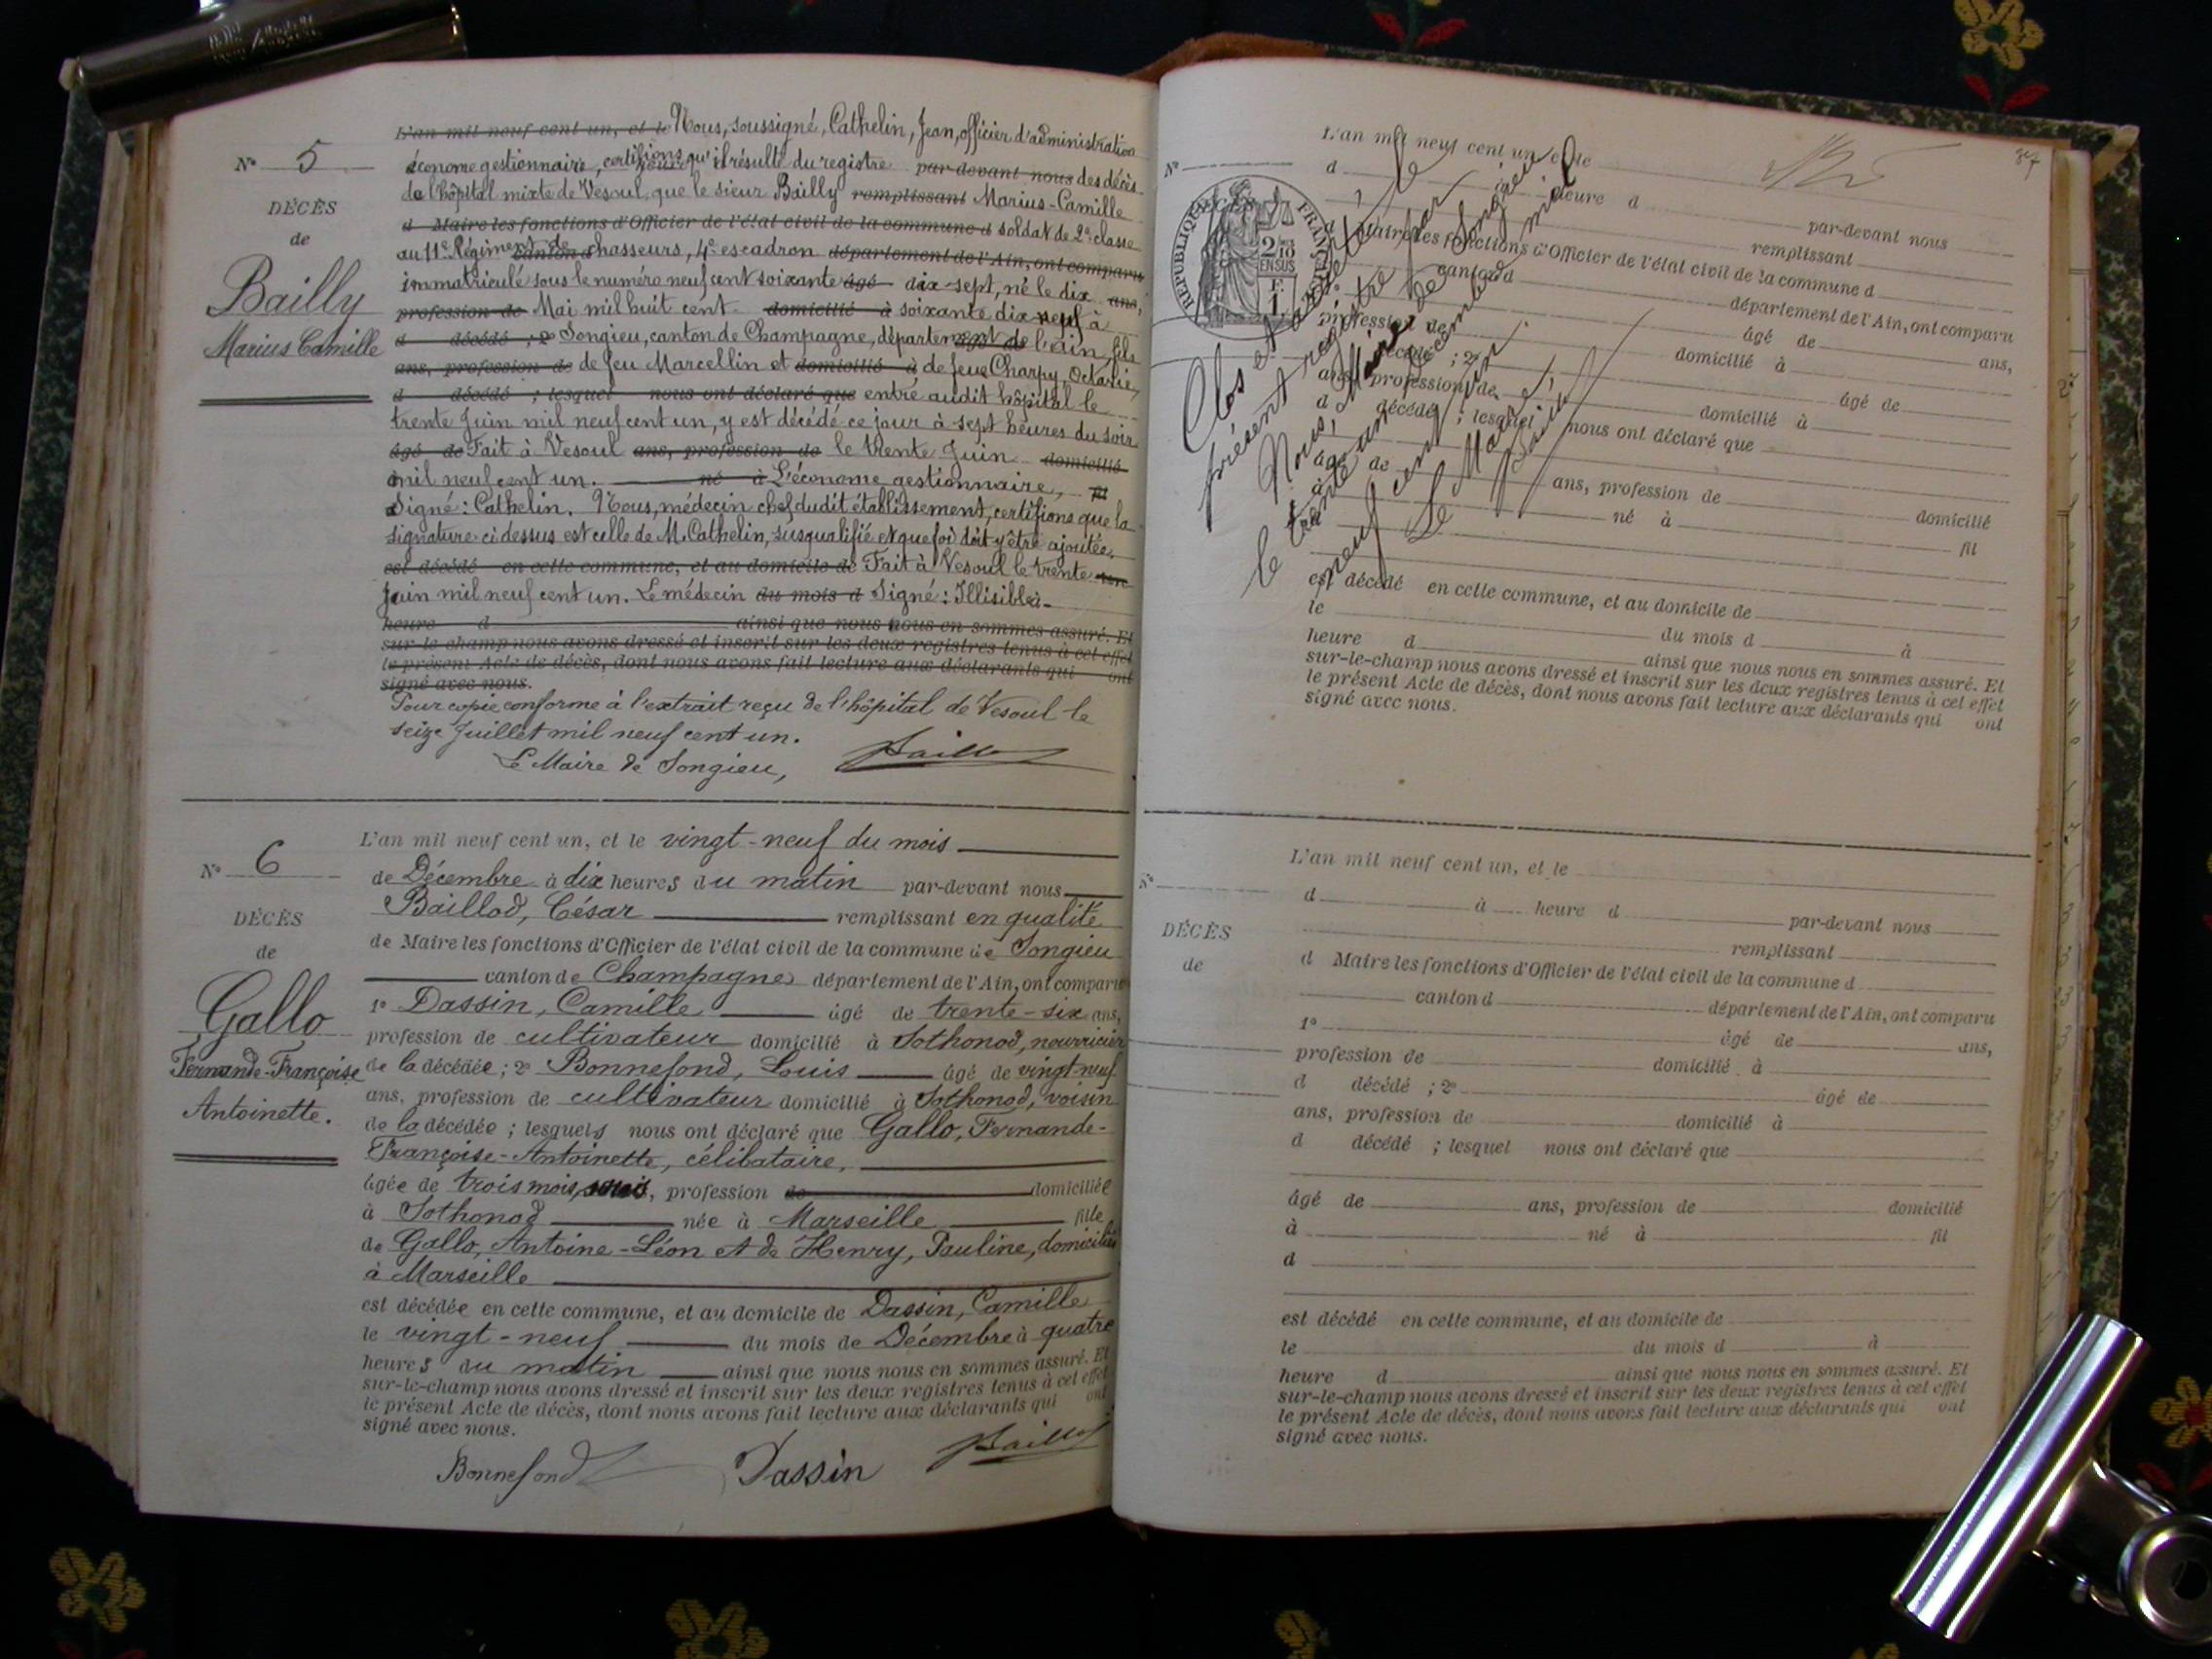 N° 5
DÉCÈS
de
Bailly
Marius Camille
L'an mil neuf cent un, et le Nous, soussigné, Cathelin, Jean, officier d'administration
économe gestionnaire, certifions qu'il résulte du registre par-devant nous des décès
de l'hôpital mixte de Vesoul, que le sieur Bailly remplissant Marius-Camille
d Maire les fonctions d'Officier de l'état civil de la commune d soldat de 2e classe
au 11e Régiment de canton d chasseurs, 4e escadron département de l'Ain, ont comparu
immatriculé sous le numéro neuf cent soixante âgé dix-sept, né le dix ans,
profession de Mai mil huit cent domicilié à soixante dix-neuf à
d décédé ; 2° Songieu, canton de Champagne, département âgé de l'Ain, fils
ans, profession de de feu Marcellin et domicilié à de feue Charpy, Octavie,
d décédé ; lesquel nous ont déclaré que entré audit hôpital le
trente Juin mil neuf cent un, y est décédé ce jour à sept heures du soir
âgé de Fait à Vesoul ans, profession de le trente Juin domicilié
à mil neuf cent un. né à L'économe gestionnaire, fil
d Signé : Cathelin. Nous, médecin chef dudit établissement, certifions que la
signature ci dessus est celle de M. Cathelin, susqualifié et que foi doit y être ajoutée.
est décédé en cette commune, et au domicile de Fait à Vesoul le trente
Juin mil neuf cent un. Le médecin du mois d Signé : Illisible à
heure d ainsi que nous nous en sommes assuré. Et
sur-le-champ nous avons dressé et inscrit sur les deux registres tenus à cet effet
le présent Acte de décès, dont nous avons fait lecture aux déclarants qui ont
signé avec nous.
Pour copie conforme à l'extrait reçu de l'hôpital de Vesoul le
seize Juillet mil neuf cent un.
Le Maire de Songieu, Baillod
N° 6
DÉCÈS
de
Gallo
Fernande-Françoise
Antoinette.
L'an mil neuf cent un, et le vingt-neuf du mois
de Décembre à dix heures du matin par-devant nous
Baillod, César remplissant en qualité
de Maire les fonctions d'Officier de l'état civil de la commune de Songieu
canton de Champagne département de l'Ain, ont comparu
1° Dassin, Camille âgé de trente-six ans,
profession de cultivateur domicilié à Sothonod, nourricier
de la décédée ; 2° Bonnefond, Louis âgé de vingt-neuf
ans, profession de cultivateur domicilié à Sothonod, voisin
de la décédée ; lesquels nous ont déclaré que Gallo, Fernande-
Françoise-Antoinette, célibataire,
âgée de trois mois, profession de domiciliée
à Sothonod née à Marseille fille
de Gallo, Antoine-Léon et de Henry, Pauline, domiciliés
à Marseille
est décédée en cette commune, et au domicile de Dassin, Camille
le vingt-neuf du mois de Décembre à quatre
heures du matin ainsi que nous nous en sommes assuré. Et
sur-le-champ nous avons dressé et inscrit sur les deux registres tenus à cet effet
le présent Acte de décès, dont nous avons fait lecture aux déclarants qui ont
signé avec nous.
Bonnefond Dassin Baillod
N°
L'an mil neuf cent un, et le
d à heure d par-devant nous
remplissant
d Maire les fonctions d'Officier de l'état civil de la commune d
canton d département de l'Ain, ont comparu
1° âgé de ans,
profession de domicilié à
d décédé ; 2° âgé de
ans, profession de domicilié à
d décédé ; lesquel nous ont déclaré que
âgé de ans, profession de domicilié
à né à fil
est décédé en cette commune, et au domicile de
le du mois d à
heure d ainsi que nous nous en sommes assuré. Et
sur-le-champ nous avons dressé et inscrit sur les deux registres tenus à cet effet
le présent Acte de décès, dont nous avons fait lecture aux déclarants qui ont
signé avec nous.
RÉPUBLIQUE FRANÇAISE
2/10
EN SUS
F.
1
Clos et arrêté le
présent registre par
Nous, Maire de Songieu
le trente un Décembre mil
neuf cent un.
Le Maire,
Baillod
N°
DÉCÈS
de
L'an mil neuf cent un, et le
d à heure d par-devant nous
remplissant
d Maire les fonctions d'Officier de l'état civil de la commune d
canton d département de l'Ain, ont comparu
1° âgé de ans,
profession de domicilié à
d décédé ; 2° âgé de
ans, profession de domicilié à
d décédé ; lesquel nous ont déclaré que
âgé de ans, profession de domicilié
à né à fil
d
est décédé en cette commune, et au domicile de
le du mois d à
heure d ainsi que nous nous en sommes assuré. Et
sur-le-champ nous avons dressé et inscrit sur les deux registres tenus à cet effet
le présent Acte de décès, dont nous avons fait lecture aux déclarants qui ont
signé avec nous.